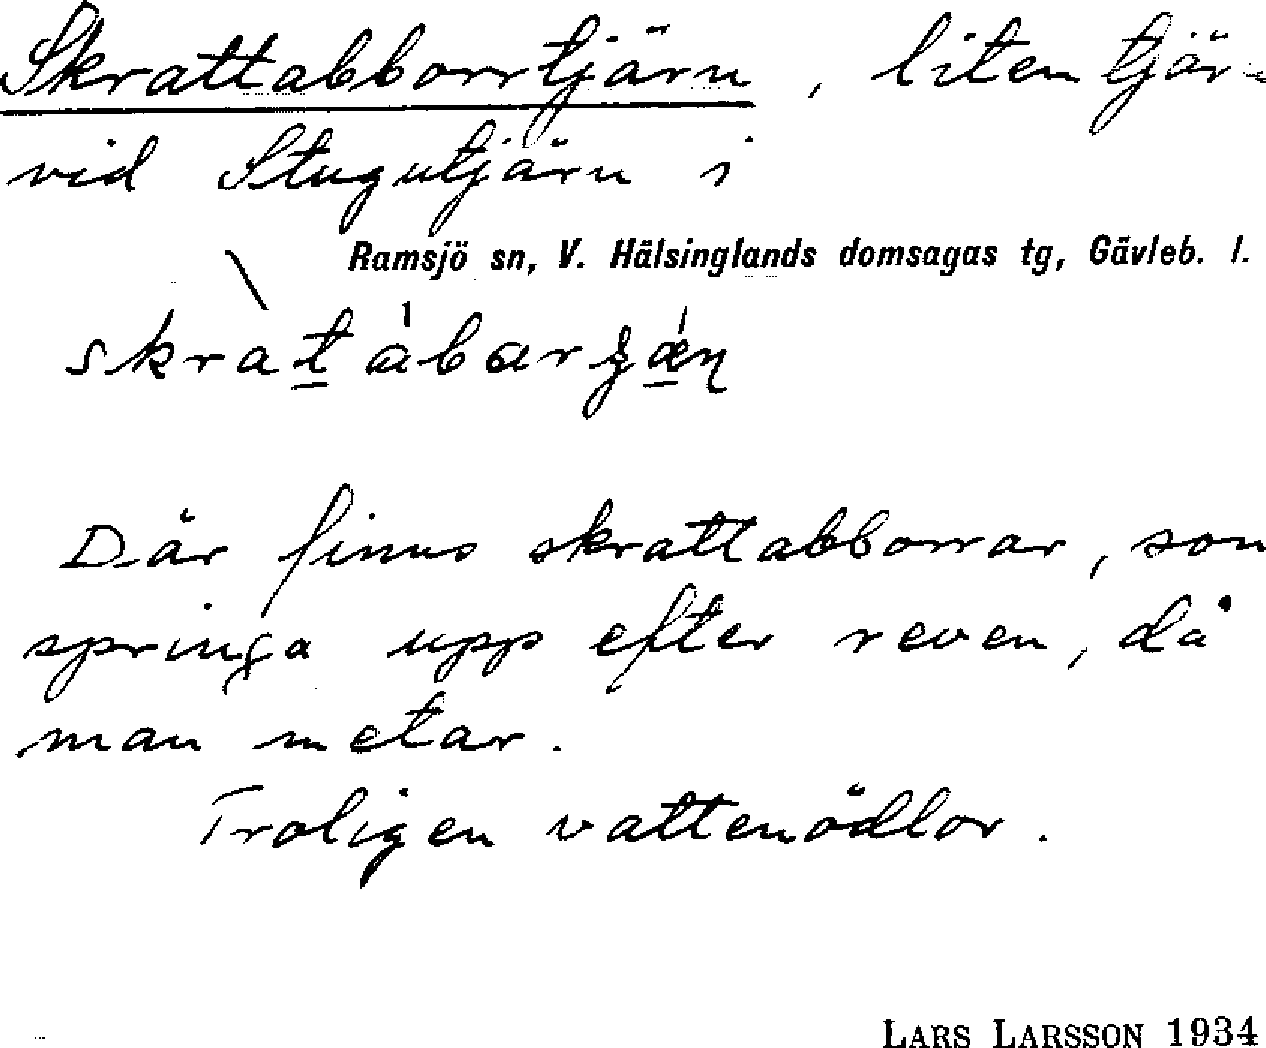 Skrattabborrtjärn, liten tjärn
vid Stugutjärn i
Ramsjö sn, V. Hälsinglands domsagas tg, Gävleb. l.
Där finns skrattabborrar, som
springa upp efter reven, då
man metar.
Troligen vattenödlor.
LARS LARSSON 1934